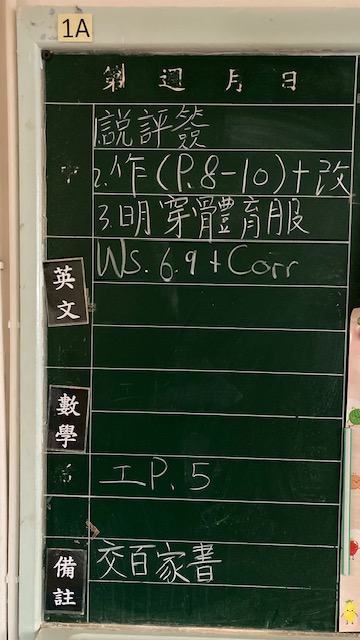 1A
第 週 月 日
中
1.說評簽
2.作(P.8-10)+改
3.明穿體育服
英文
Ws. 6.9 + Corr
數學
常
工P.5
備註
交百家書